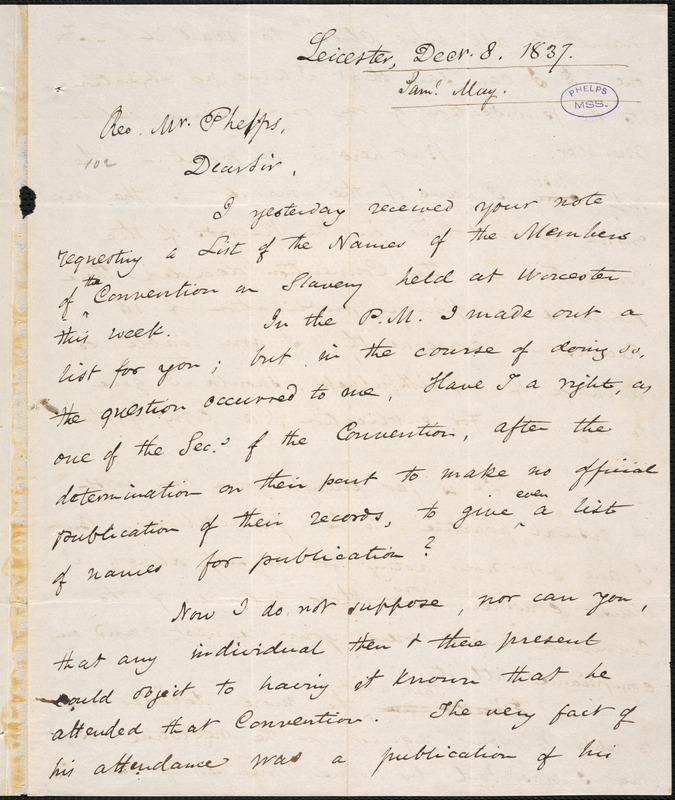 Leicester, Decr. 8. 1837.
Saml. May.
PHELPS
MSS.
Rev. Mr. Phelps,
102
Dear Sir,
I yesterday received your note
requesting a List of the Names of the Members
of the Convention on Slavery held at Worcester
this week. In the P.M. I made out a
list for you; but in the course of doing so,
the question occurred to me, Have I a right, as
one of the Sec.s of the Convention, after the
determination on their part to make no official
publication of their records, to give even a list
of names for publication?
Now I do not suppose, nor can you,
that any individual then & there present
could object to having it known that he
attended that Convention. The very fact of
his attendance was a publication of his